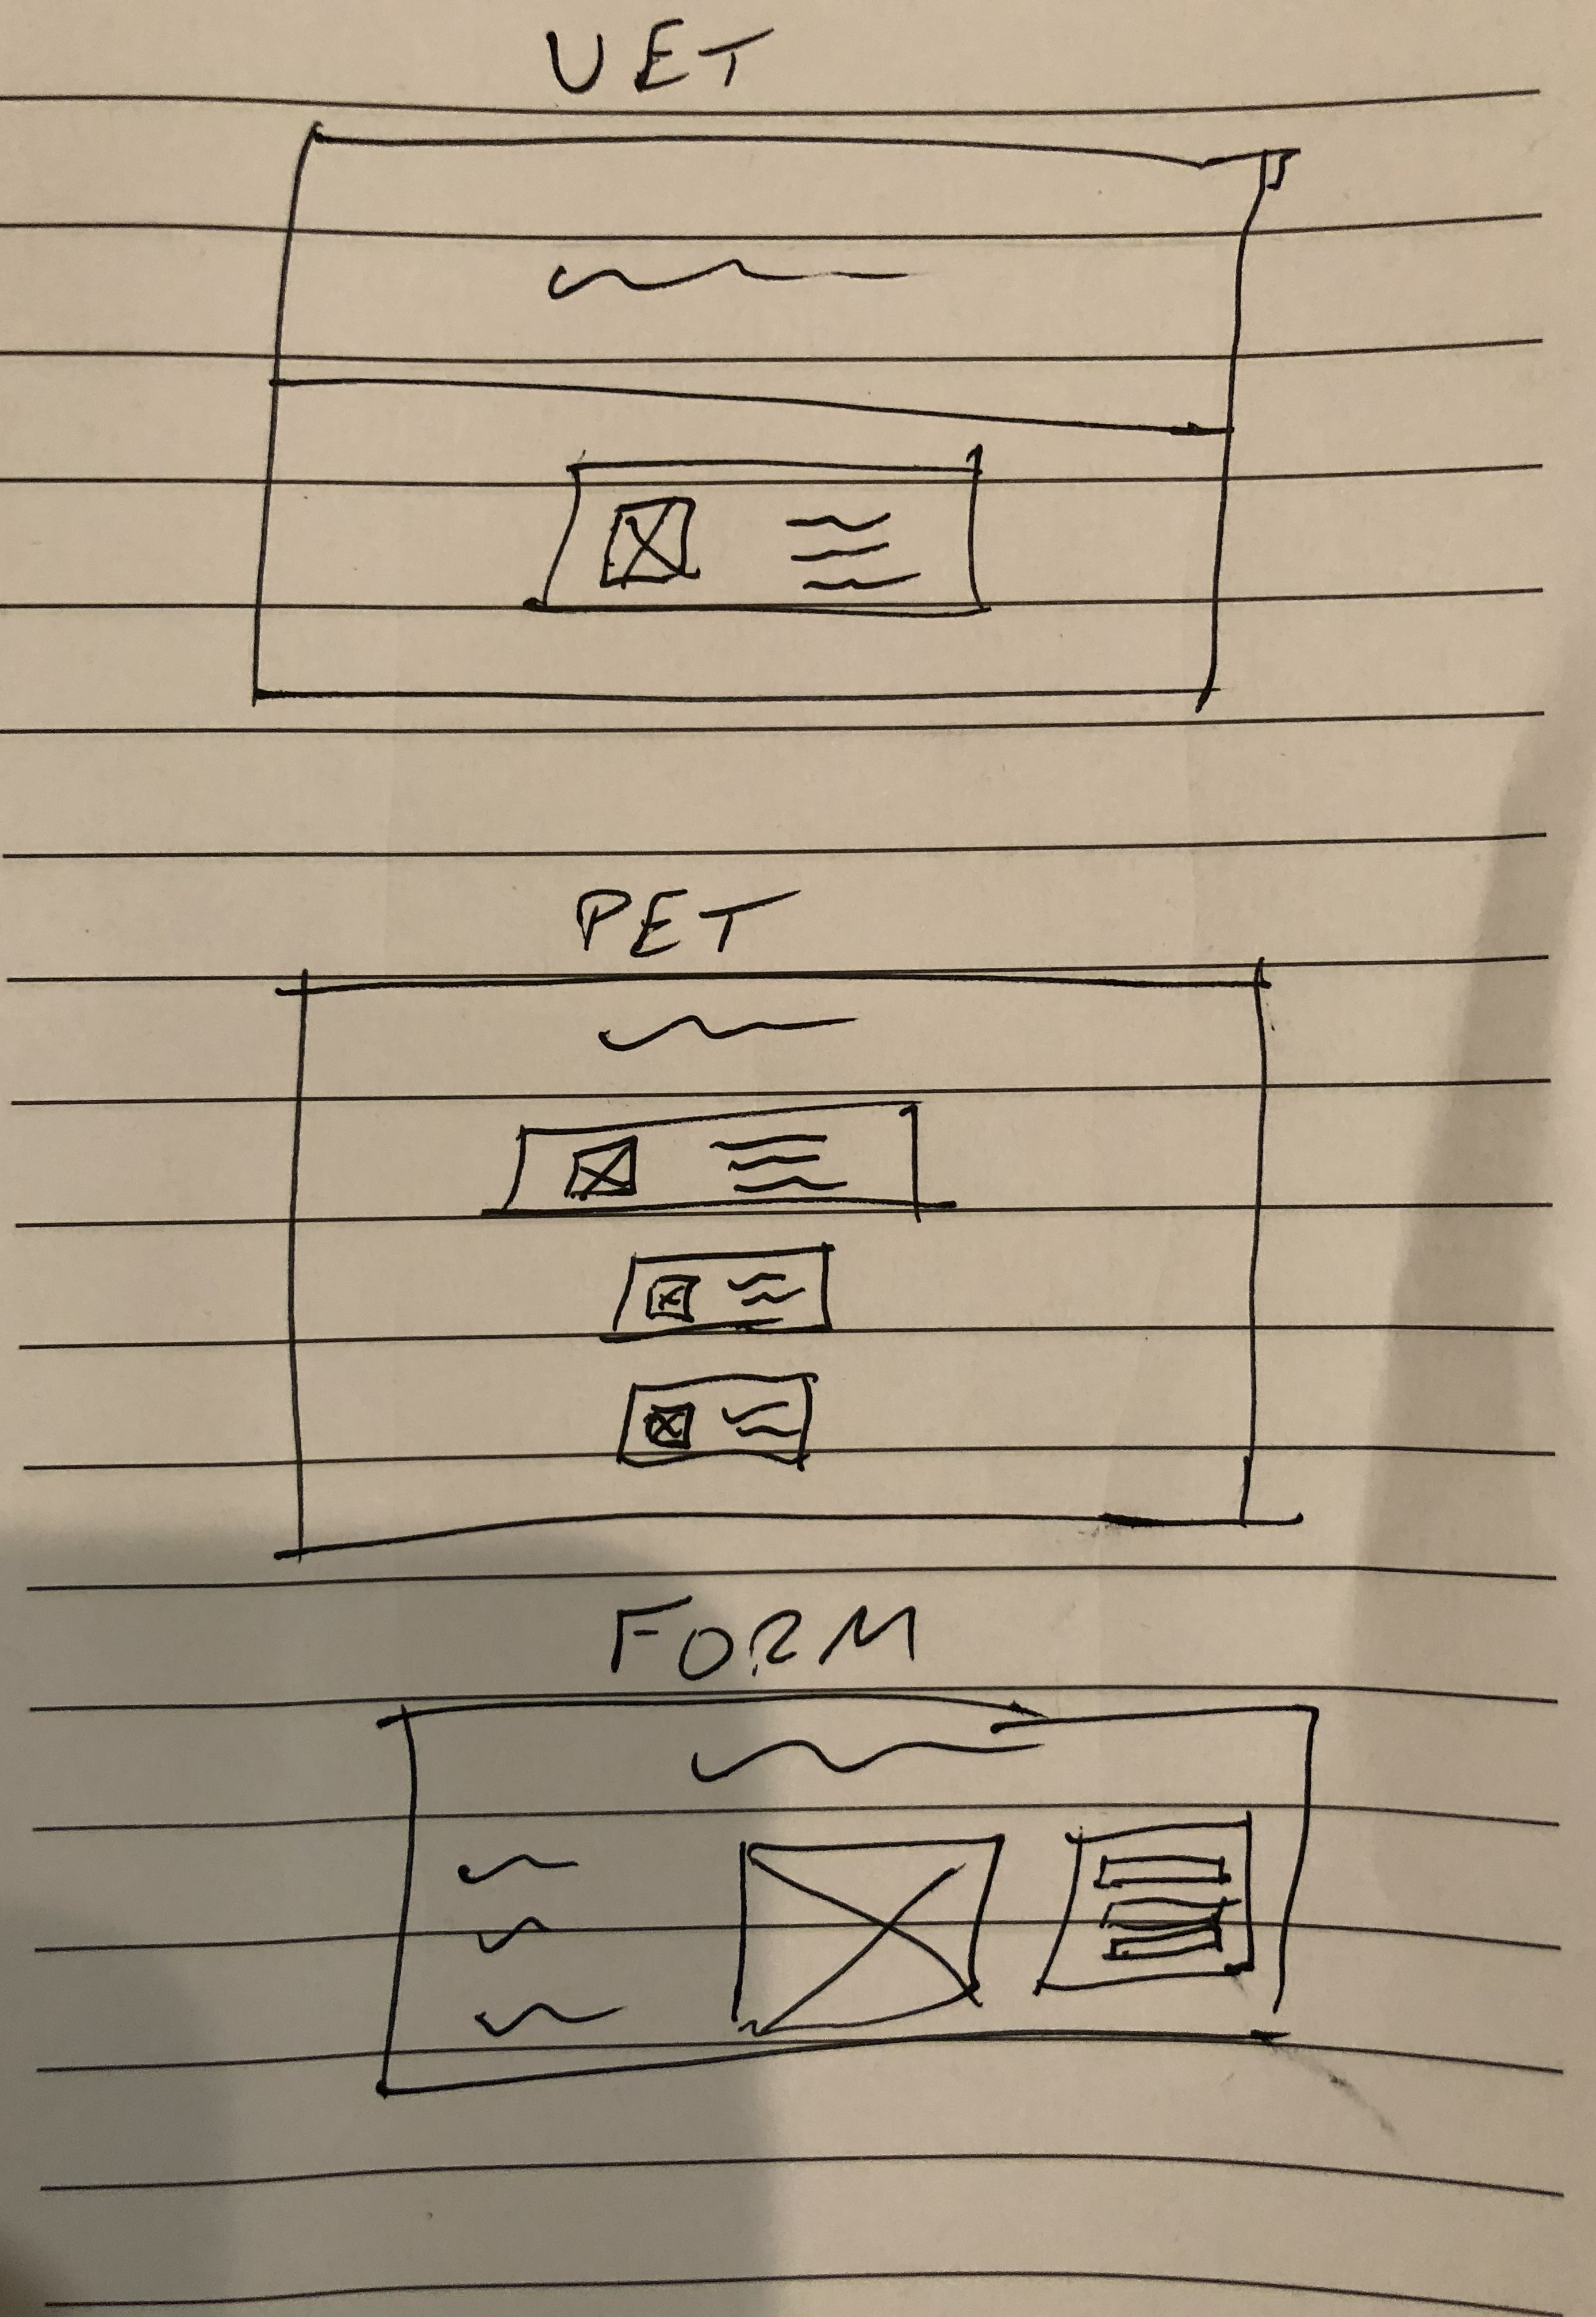 VET
PET
FORM